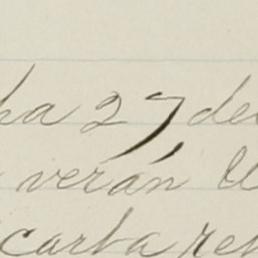 ha 27 de
verán U
carta re